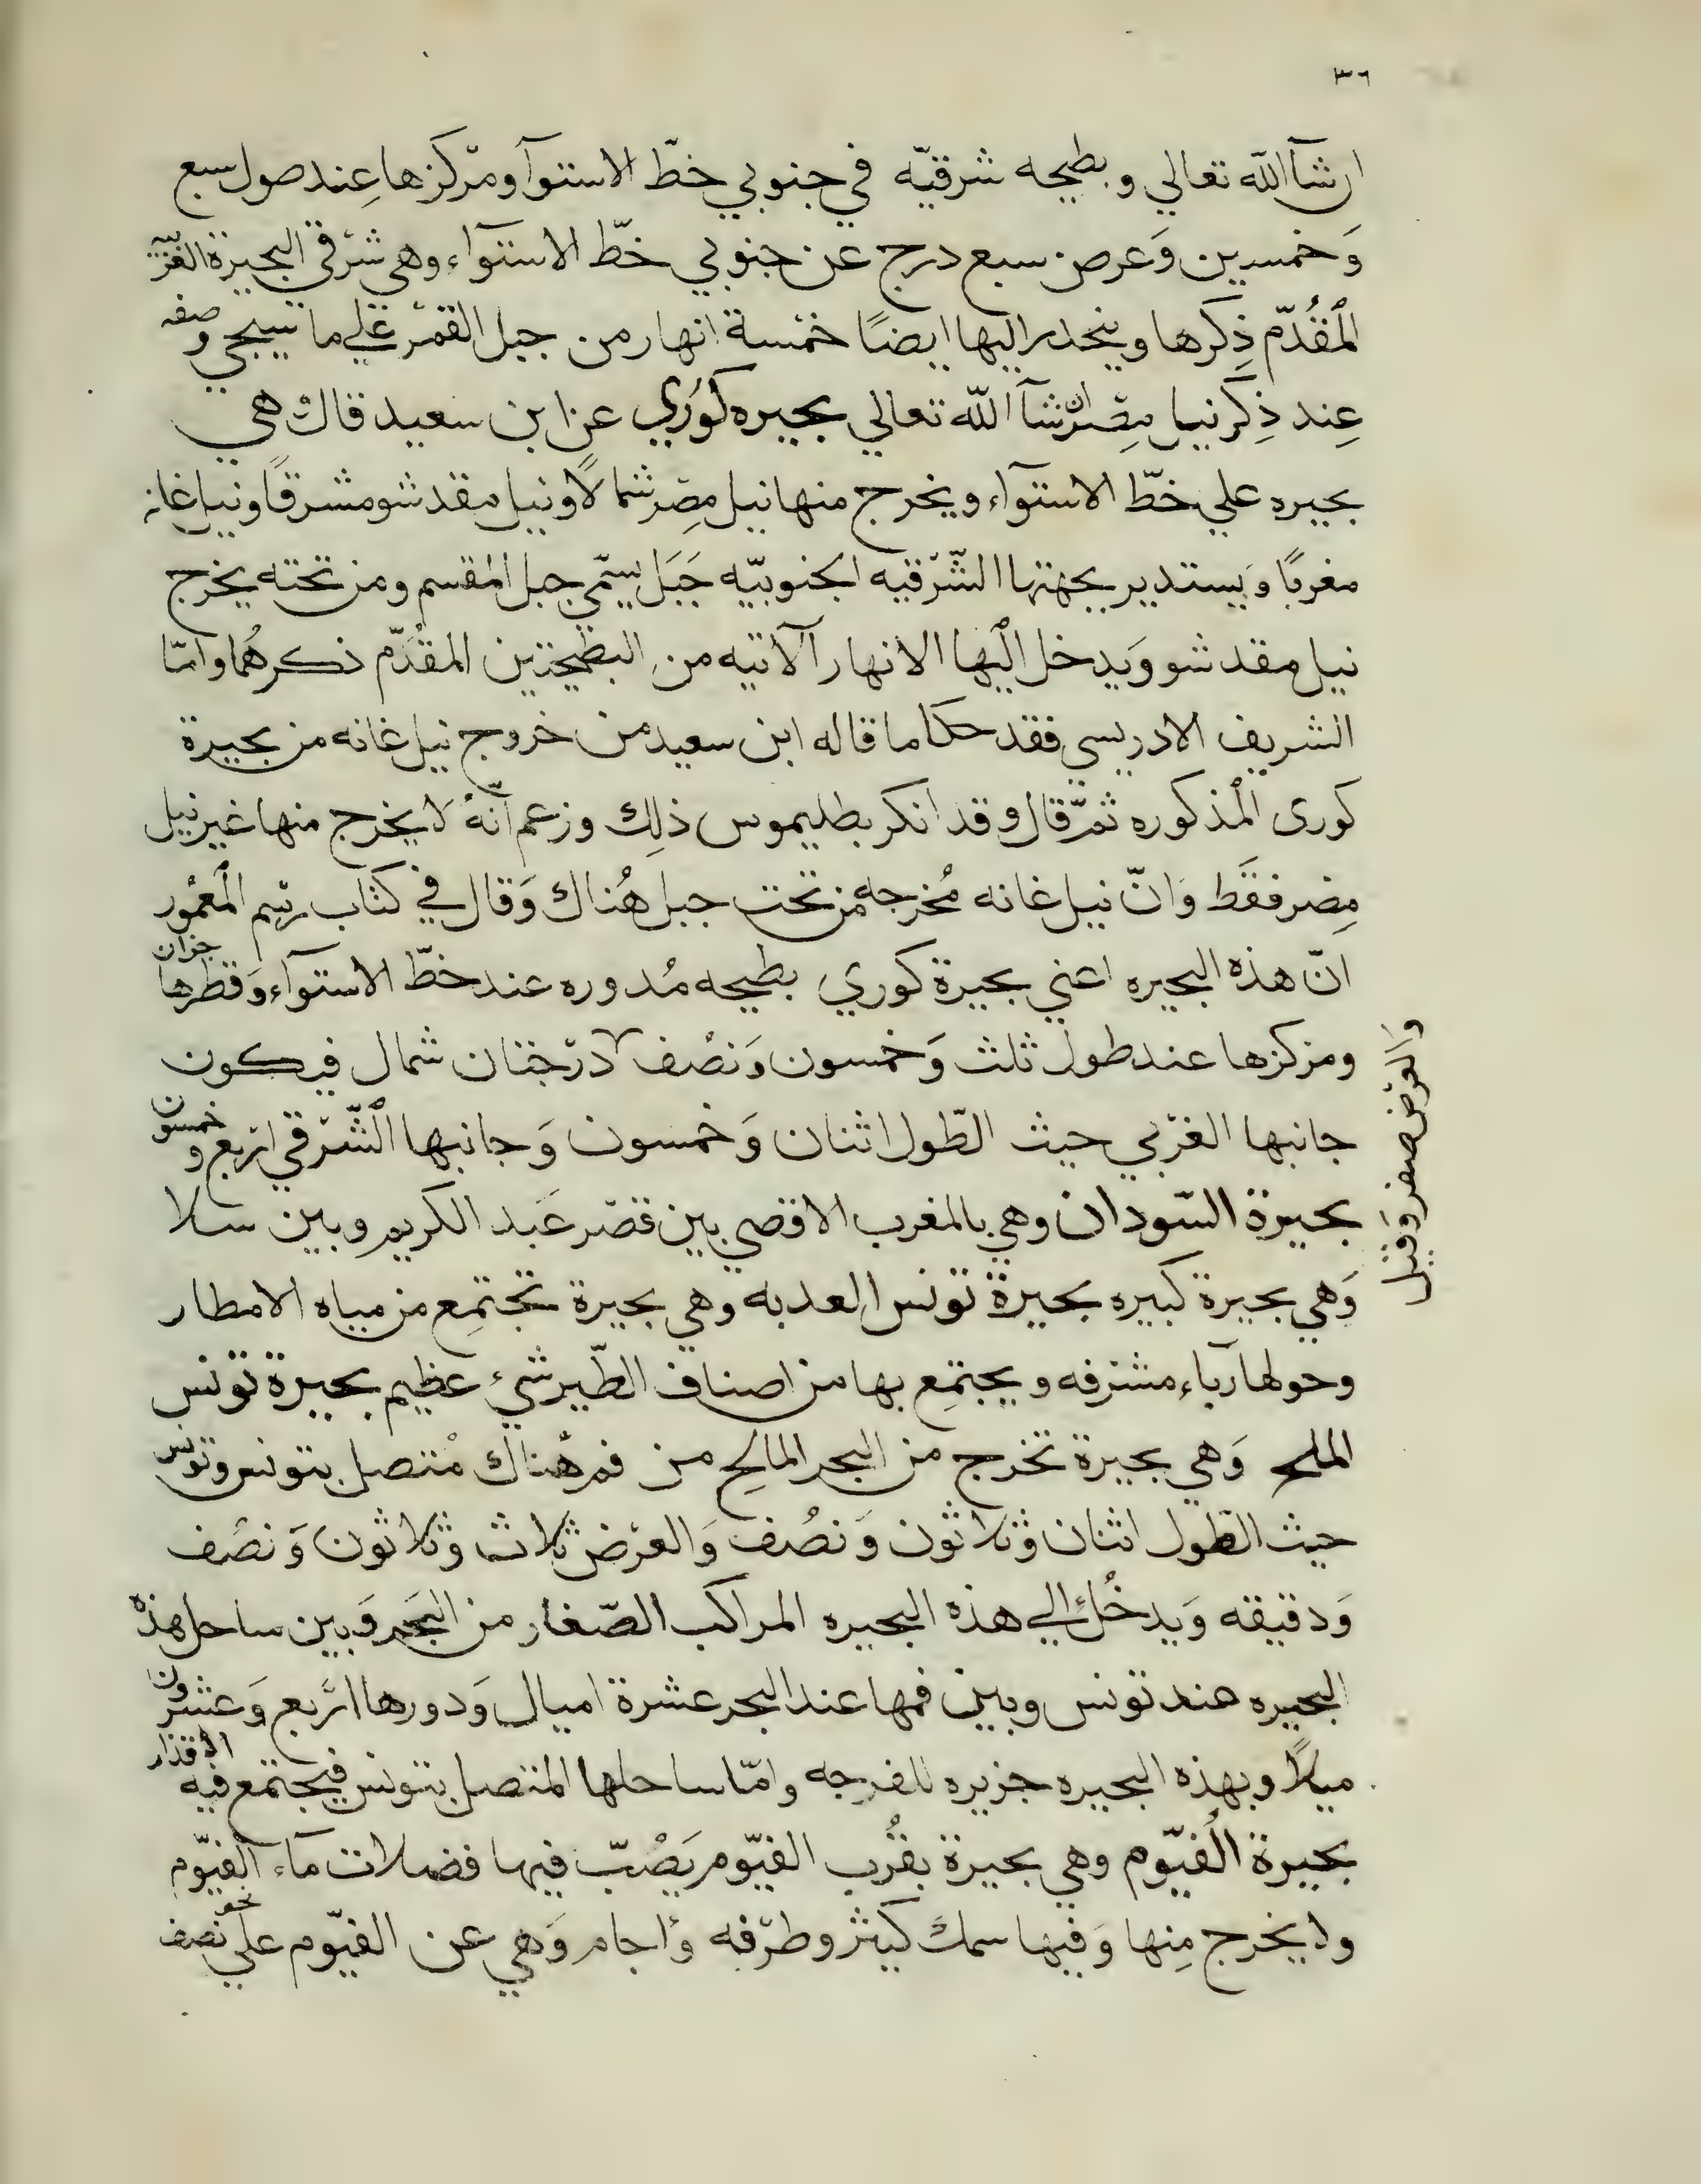 ٣٦
ان شآ الله تعالي وبطيحه شرقيّه في جنوبي خطّ الاستوآ ومركزها عِند صول سبع
وَخمسين وَعرض سبع درج عن جنوبي خطّ الاستوآء وهي شرقي البحيرة الغربيّة
المقُدّم ذِكرها وينحدر اليها ايضًا خمْسة انهار من جبل القمْر علي ما سيجي وصفه
عِند ذِكر نيل مِصْر ان شآ الله تعالي بحيره كوُري عن ابن سعيد قال هي
بحيره علي خطّ الاستوآء ويخرج منها نيل مِصْر شمالًا ونيل مقدشو مشرقًا ونيل غانه
مغربًا وَيستدير بجهتها الشّرْقيه الجنوبيّه جَبَل يسمّي جبل المقسم ومن تحته يخرج
نيل مقدشو وَيدخل اليْها الانهار الآتيه من البطيحتين المقُدّم ذكرهُما وامّا
الشريف الادريسي فقد حكا ما قاله ابن سعيد من خروج نيل غانه من بحيرة
كورى المْذكوره ثمّ قال وقد انكر بطليموس ذلِك وزعم انّهُ لا يخرج منها غير نيل
مِصر فقَط وَانّ نيل غانه مُخرجه من تحت جبل هُناك وَقال في كتاب رسْم المْعمُور
انّ هذه البحيره اعني بحيرة كوري بطيحه مُدوره عند خطّ الاستوآء وَقطرها جزوان
ومركزها عند طول ثلث وَخمسون وَنصْف درجتان شمال فيكون
والعرْض صفر وقيل
جانبها الغرْبي حيث الطّول اثنان وَخمسون وَجانبها الشّرْقي اربع وخمسون
بحيرة السّودان وهي بالمغرب الاقصي بين قصْر عَبد الكريم وبين سلا
وَهي بحيرة كبيره بحيرة تونس العدبه وهي بحيرة تجتمِع من مياه الامطار
وحولها رُباء مشرفه ويجتمِع بها من اصناف الطّير شيء عظيم بحيرة تونس
الملح وَهي بحيرة تخرج من البحر المالح من فم هُناك مُتصل بتونس وتونس
حيث الطّول اثنان وَثلاثون وَنصُف وَالعرْض ثلاث وَثلاثون وَنصْف
وَدقيقه وَيدخُل الي هذه البحيره المراكب الصّغار من البَحر وَبين ساحل هذه
البحيره عند تونس وبين فمها عند البحر عشرة اميال وَدورها ارْبع وَعشرون
ميلاً وبهذه البحيره جزيره للفرجه وامّا ساحلها المتصل بتونس فيجتمع فيه الاقذار
بحيرة الُفيّوم وهي بحيرة بقُرب الفيّوم يَصْبّ فيها فضلات مآء الفيّوم
ولا يخرج مِنها وَفيها سمكَ كثير وطرْفه وَاجام وَهي عن الفيّوم علي نحو نصف